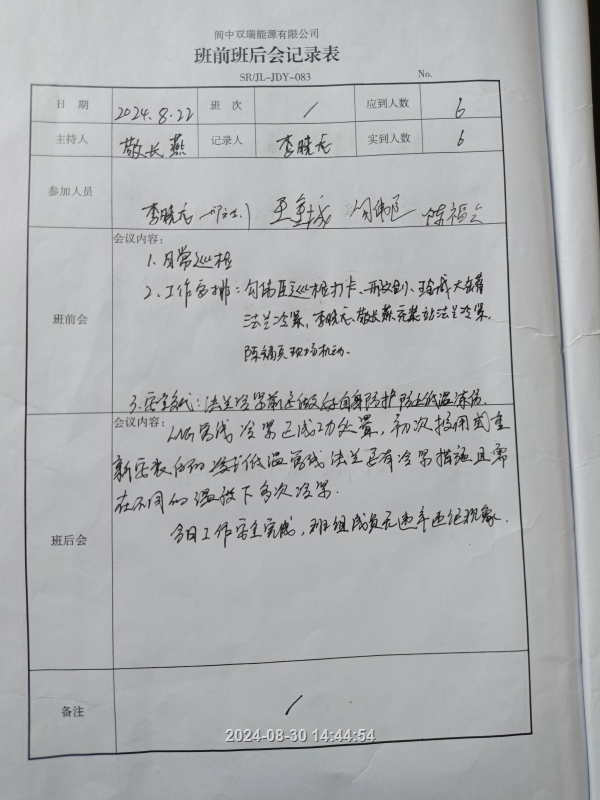 阆中双瑞能源有限公司
班前班后会记录表
SR/JL-JDY-083 No.
日 期 2024.8.22 班 次 / 应到人数 6
主持人 敬长燕 记录人 李晓龙 实到人数 6
参加人员 李晓龙
班前会
会议内容:
1. 日常巡检
2. 工作安排: 巡检打卡、大罐
法兰冷紧, 李晓龙、敬长燕充装站法兰冷紧,
现场机动.
3. 安全: 法兰冷紧前要做好自身防护防止低温冻伤.
班后会
会议内容:
LNG管线冷紧已成功处置, 初次投用或重
新安装低温管线法兰要有冷紧措施且需
在不同的温度下多次冷紧.
今日工作安全完成, 班组成员无违章违纪现象.
备注 /
2024-08-30 14:44:54